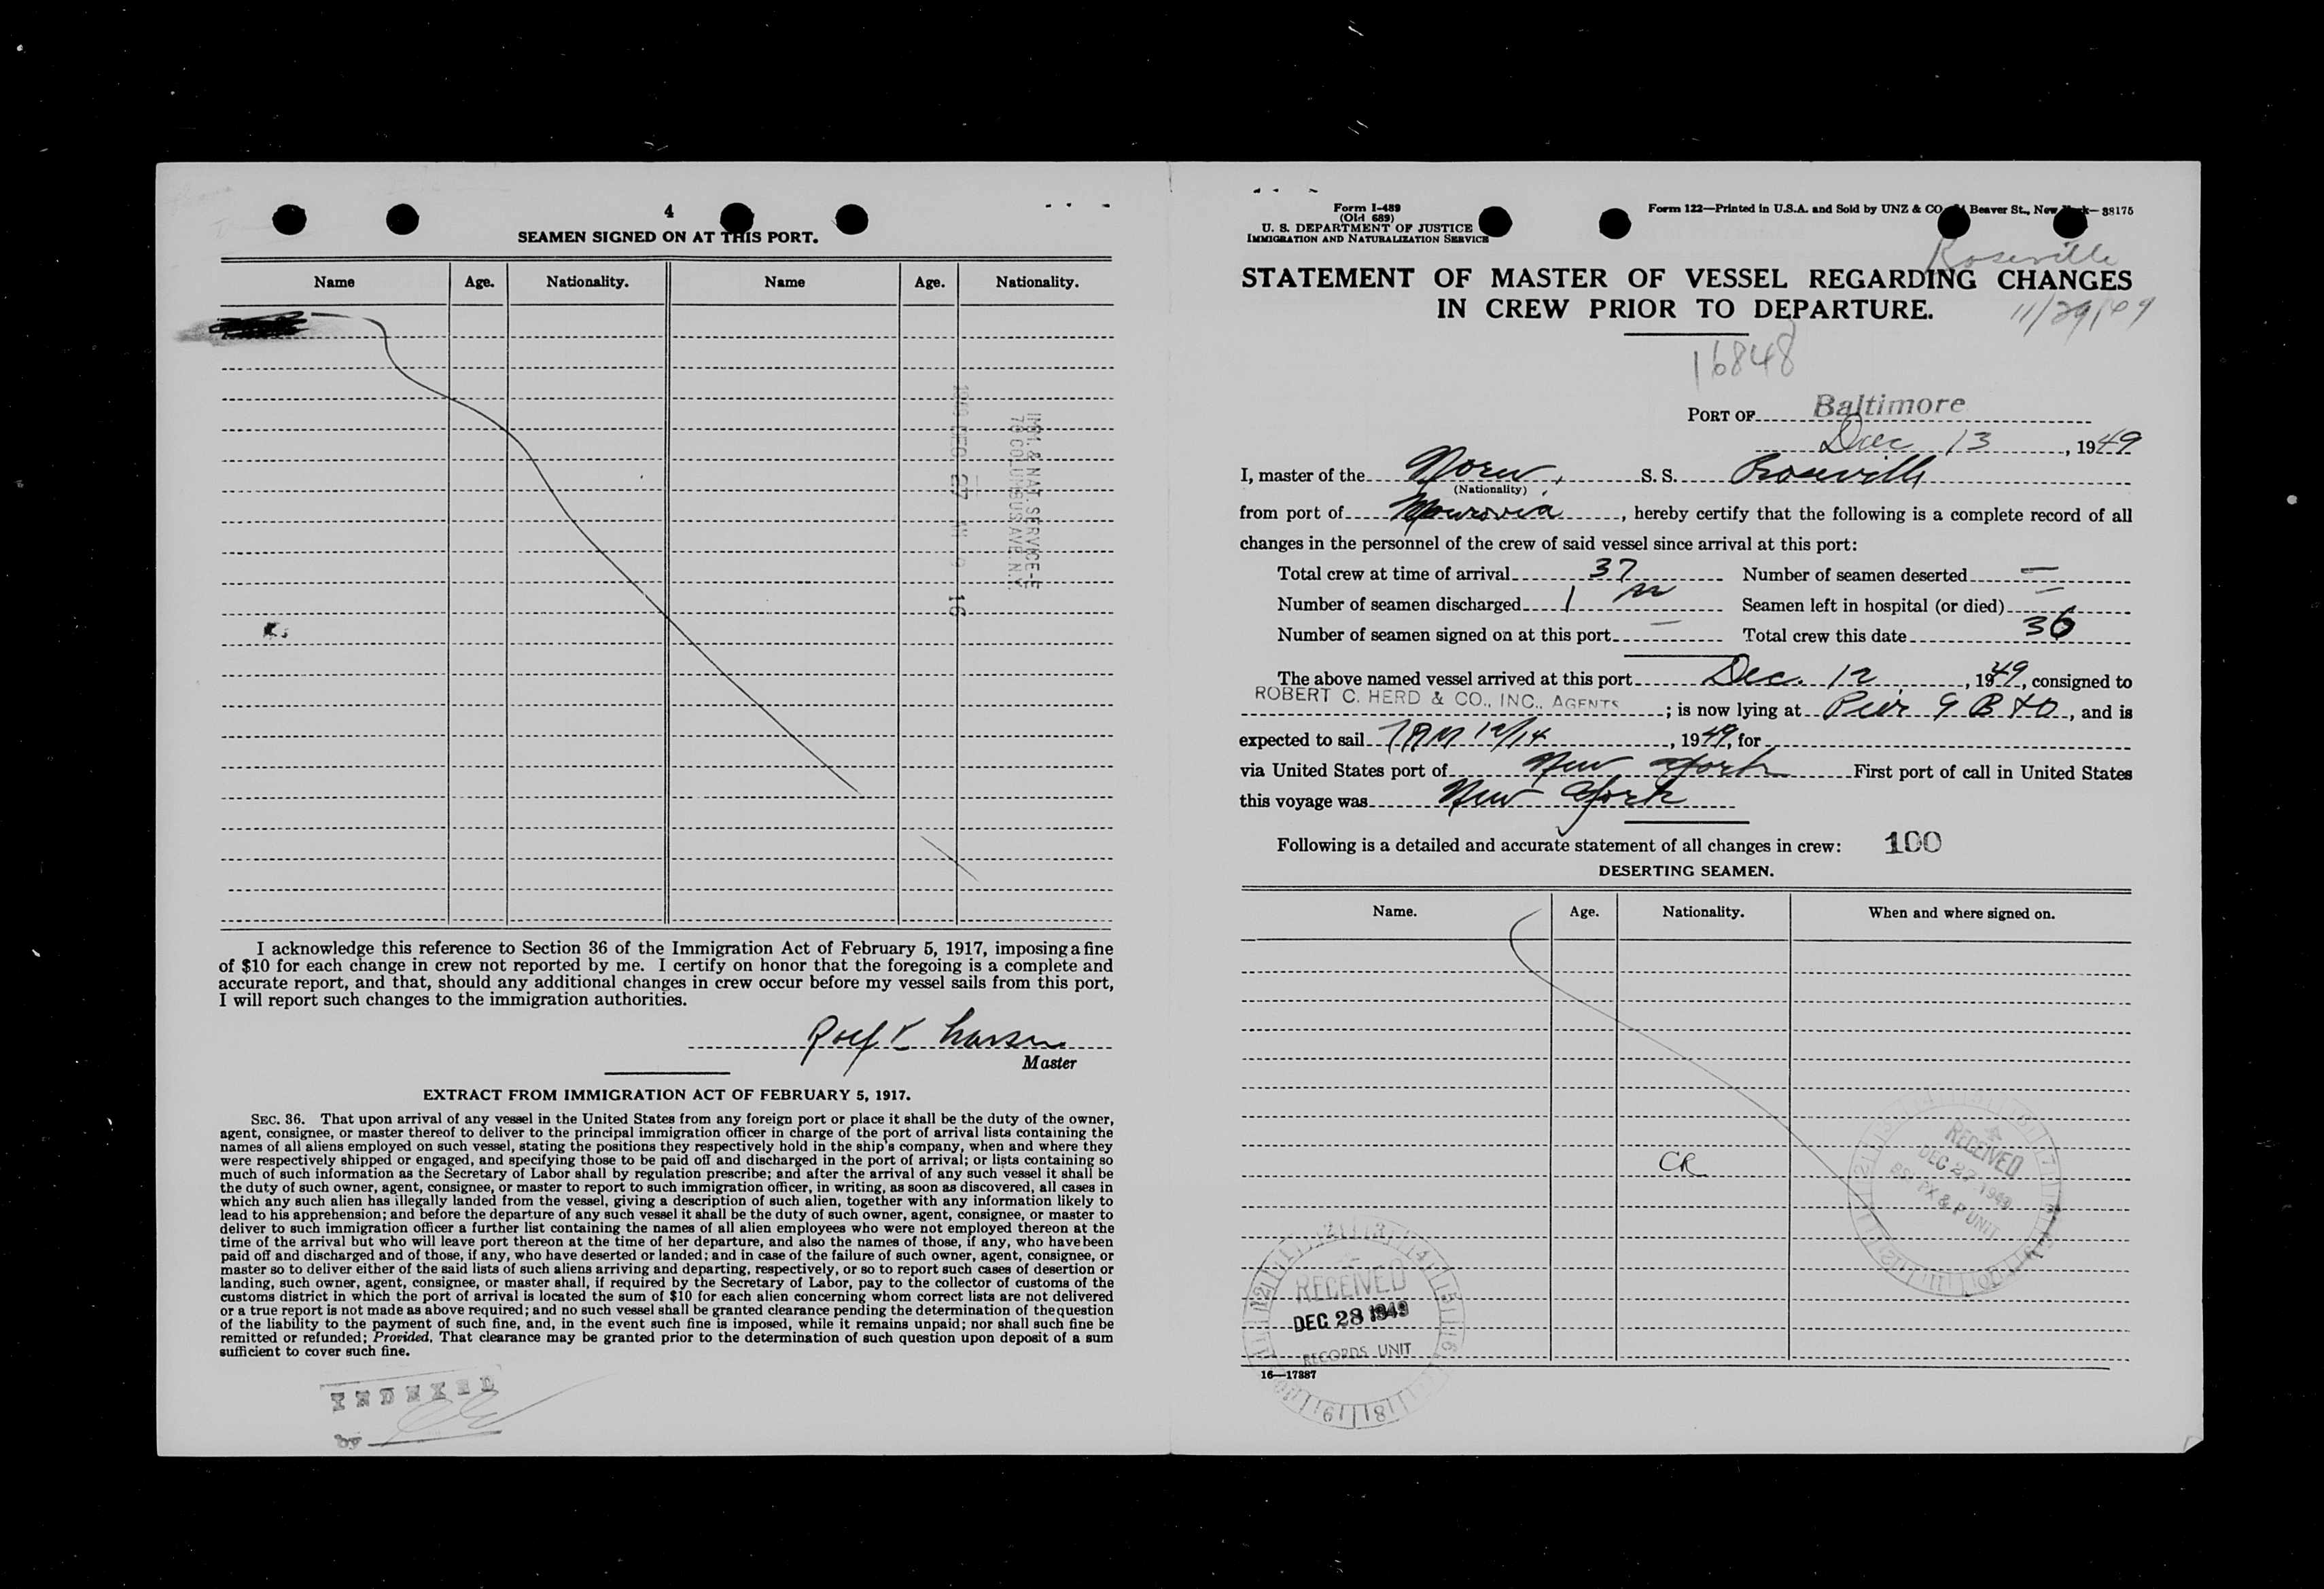 4
SEAMEN SIGNED ON AT THIS PORT.
Name Age. Nationality. Name Age. Nationality.
IMM. & NAT. SERVICE-E
70 COLUMBUS AVE. N.Y.
I acknowledge this reference to Section 36 of the Immigration Act of February 5, 1917, imposing a fine
of $10 for each change in crew not reported by me. I certify on honor that the foregoing is a complete and
accurate report, and that, should any additional changes in crew occur before my vessel sails from this port,
I will report such changes to the immigration authorities.
Master
EXTRACT FROM IMMIGRATION ACT OF FEBRUARY 5, 1917.
SEC. 36. That upon arrival of any vessel in the United States from any foreign port or place it shall be the duty of the owner,
agent, consignee, or master thereof to deliver to the principal immigration officer in charge of the port of arrival lists containing the
names of all aliens employed on such vessel, stating the positions they respectively hold in the ship's company, when and where they
were respectively shipped or engaged, and specifying those to be paid off and discharged in the port of arrival; or lists containing so
much of such information as the Secretary of Labor shall by regulation prescribe; and after the arrival of any such vessel it shall be
the duty of such owner, agent, consignee, or master to report to such immigration officer, in writing, as soon as discovered, all cases in
which any such alien has illegally landed from the vessel, giving a description of such alien, together with any information likely to
lead to his apprehension; and before the departure of any such vessel it shall be the duty of such owner, agent, consignee, or master to
deliver to such immigration officer a further list containing the names of all alien employees who were not employed thereon at the
time of the arrival but who will leave port thereon at the time of her departure, and also the names of those, if any, who have been
paid off and discharged and of those, if any, who have deserted or landed; and in case of the failure of such owner, agent, consignee, or
master so to deliver either of the said lists of such aliens arriving and departing, respectively, or so to report such cases of desertion or
landing, such owner, agent, consignee, or master shall, if required by the Secretary of Labor, pay to the collector of customs of the
customs district in which the port of arrival is located the sum of $10 for each alien concerning whom correct lists are not delivered
or a true report is not made as above required; and no such vessel shall be granted clearance pending the determination of the question
of the liability to the payment of such fine, and, in the event such fine is imposed, while it remains unpaid; nor shall such fine be
remitted or refunded; Provided, That clearance may be granted prior to the determination of such question upon deposit of a sum
sufficient to cover such fine.
INDEXED
by
Form I-489
(Old 689)
U. S. DEPARTMENT OF JUSTICE
IMMIGRATION AND NATURALIZATION SERVICE
Form 122—Printed in U.S.A. and Sold by UNZ & CO. Beaver St., New — 38175
Roseville
STATEMENT OF MASTER OF VESSEL REGARDING CHANGES
IN CREW PRIOR TO DEPARTURE.
11/29/49
16848
PORT OF Baltimore
Dec 13, 1949
I, master of the Norw, S. S. Roseville
(Nationality)
from port of Monrovia, hereby certify that the following is a complete record of all
changes in the personnel of the crew of said vessel since arrival at this port:
Total crew at time of arrival 37 Number of seamen deserted —
Number of seamen discharged 1 Seamen left in hospital (or died) —
Number of seamen signed on at this port — Total crew this date 36
The above named vessel arrived at this port Dec. 12, 1949, consigned to
ROBERT C. HERD & CO., INC., AGENTS; is now lying at Pier 9 B & O, and is
expected to sail 7AM 12/14, 1949, for
via United States port of New York First port of call in United States
this voyage was New York
Following is a detailed and accurate statement of all changes in crew: 100
DESERTING SEAMEN.
Name. Age. Nationality. When and where signed on.
CR
RECEIVED
DEC 27 1949
& P UNIT
RECEIVED
DEC 28 1949
RECORDS UNIT
16—17387